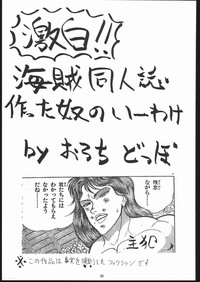 激白!!
海賊同人誌
作った奴のいーわけ
by おろち どっぽ
残念
ながら…
君たちには
わかって
もらえ
なかったよう
だね……
主犯
※この作品は事実を捕酌したフィクションです